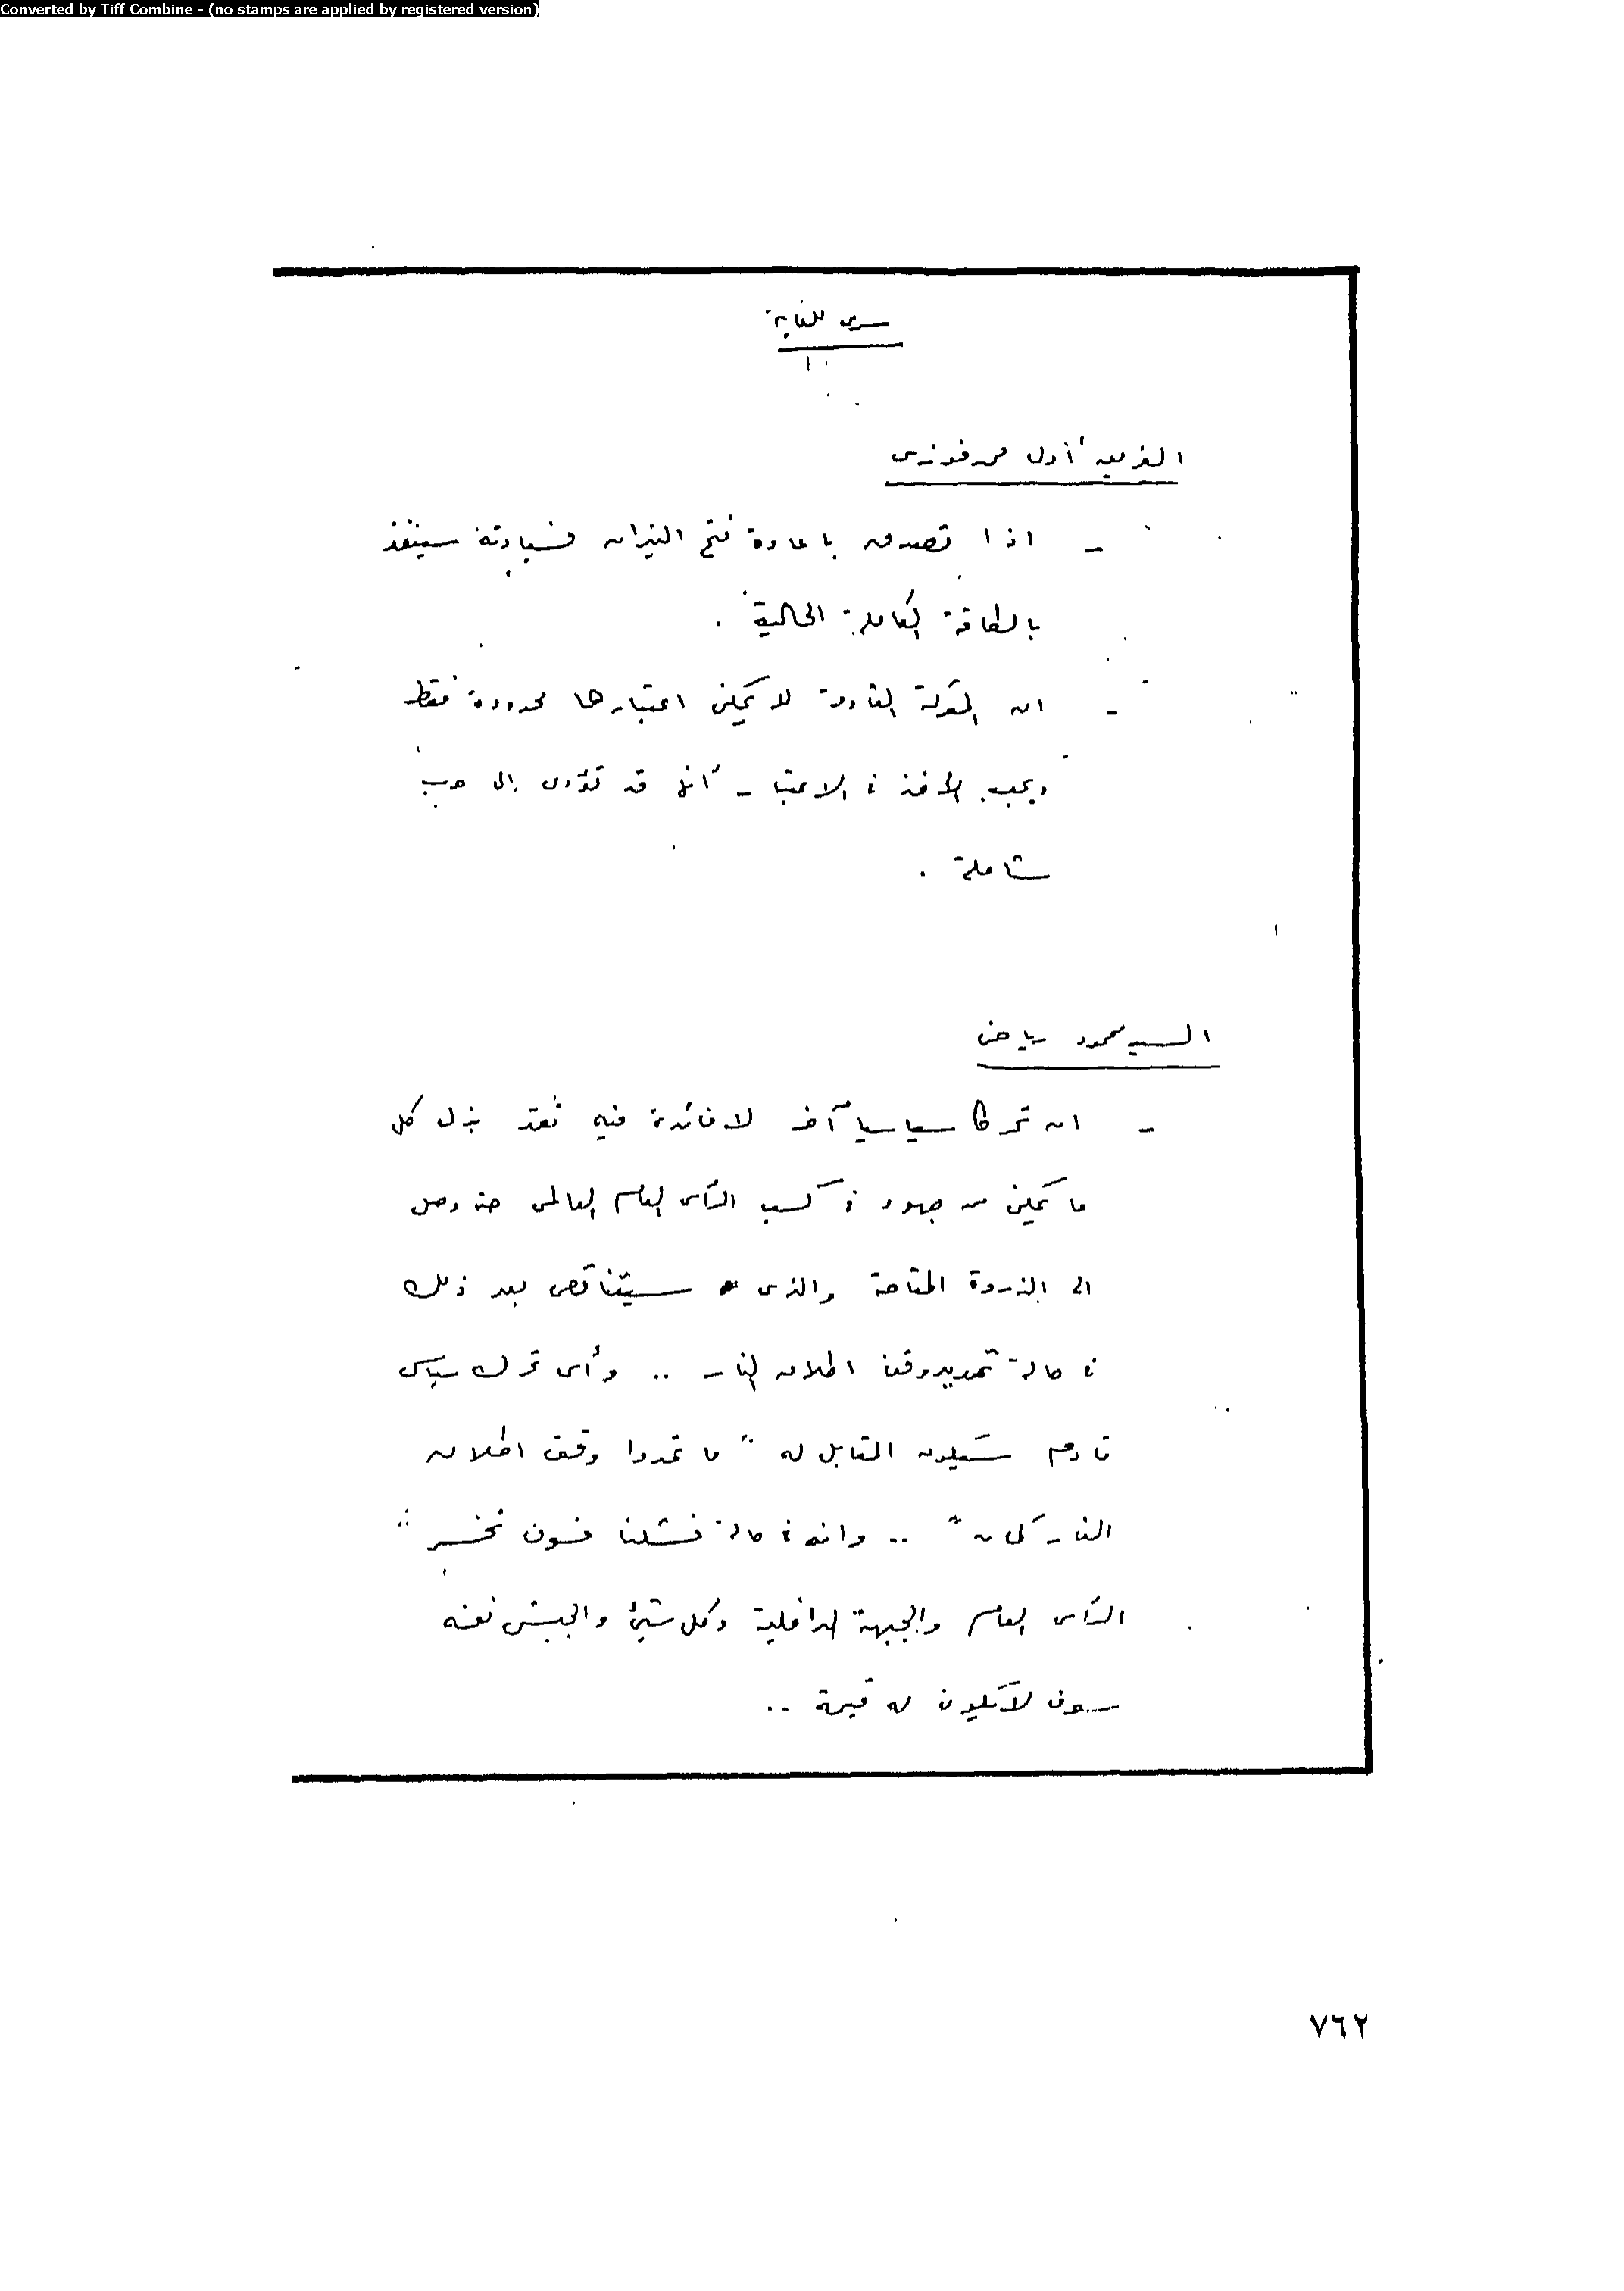 Converted by Tiff Combine - (no stamps are applied by registered version)
سرى للغاية
١٠
الفريق أول محمد فوزى
- اذا تصدق باعادة فتح النيران فسيادته سينفذ
بالطاقة الكاملة الحالية .
- ان المعركة القادمة لا يمكن اعتبارها محدودة فقط
ويجب الأخذ فى الاعتبار أنها قد تؤدى إلى حرب
شاملة .
السيد محمود رياض
- ان تحركا سياسياً آخر لا فائدة فيه فقد بذل كل
ما يمكن من جهود فى كسب الرأى العام العالمى حتى وصل
الى الذروة المتاحة والذى سيتناقص بعد ذلك
فى حالة تمديد وقف اطلاق النار .. وأى تحرك سياسى
قادم سيكون المقابل له " ما تمدوا وقف اطلاق
النار كمان " .. وانه فى حالة فشلنا فسوف نخسر
الرأى العام والجبهة الداخلية وكل شيئ والجيش نفسه
سوف لا يكون له قيمة ..
٧٦٢